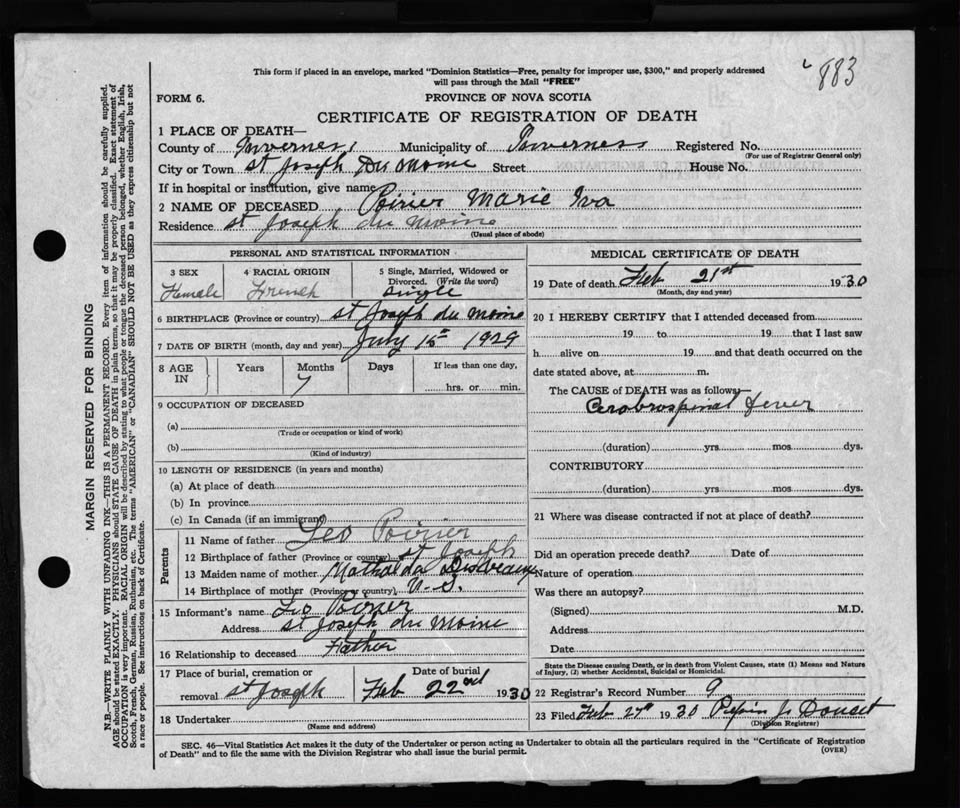 883
This form if placed in an envelope, marked "Dominion Statistics—Free, penalty for improper use, $300," and properly addressed
will pass through the Mail "FREE"
FORM 6.
PROVINCE OF NOVA SCOTIA
CERTIFICATE OF REGISTRATION OF DEATH
1 PLACE OF DEATH—
County of Inverness Municipality of Inverness Registered No.
(For use of Registrar General only)
City or Town St Joseph Du Moine Street House No.
If in hospital or institution, give name
2 NAME OF DECEASED Poirier Marie Iva
Residence St Joseph du Moine
(Usual place of abode)
PERSONAL AND STATISTICAL INFORMATION
3 SEX 4 RACIAL ORIGIN 5 Single, Married, Widowed or
Divorced. (Write the word)
Female French Single
6 BIRTHPLACE (Province or country) St Joseph du Moine
7 DATE OF BIRTH (month, day and year) July 15 1929
8 AGE IN Years Months Days If less than one day,
7 hrs. or min.
9 OCCUPATION OF DECEASED
(a)
(Trade or occupation or kind of work)
(b)
(Kind of industry)
10 LENGTH OF RESIDENCE (in years and months)
(a) At place of death
(b) In province
(c) In Canada (if an immigrant)
Parents
11 Name of father Leo Poirier
12 Birthplace of father (Province or country) St Joseph
13 Maiden name of mother Mathalda
14 Birthplace of mother (Province or country) U.S.
15 Informant's name Leo Poirier
Address St Joseph du Moine
16 Relationship to deceased Father
17 Place of burial, cremation or removal St Joseph Date of burial Feb 22nd 1930
18 Undertaker
(Name and address)
MEDICAL CERTIFICATE OF DEATH
19 Date of death Feb 21st 1930
(Month, day and year)
20 I HEREBY CERTIFY that I attended deceased from
19 to 19 that I last saw
h alive on 19 and that death occurred on the
date stated above, at m.
The CAUSE of DEATH was as follows:—
Cerobrospinal Fever
(duration) yrs mos dys.
CONTRIBUTORY
(duration) yrs mos dys.
21 Where was disease contracted if not at place of death?
Did an operation precede death? Date of
Nature of operation
Was there an autopsy?
(Signed) M.D.
Address
Date
State the Disease causing Death, or in death from Violent Causes, state (1) Means and Nature
of Injury, (2) whether Accidental, Suicidal or Homicidal.
22 Registrar's Record Number 9
23 Filed Feb 27th 1930 J. Doucet
(Division Registrar)
SEC. 46—Vital Statistics Act makes it the duty of the Undertaker or person acting as Undertaker to obtain all the particulars required in the "Certificate of Registration
of Death" and to file the same with the Division Registrar who shall issue the burial permit.
(OVER)
MARGIN RESERVED FOR BINDING
N.B.—WRITE PLAINLY WITH UNFADING INK—THIS IS A PERMANENT RECORD. Every item of information should be carefully supplied.
AGE should be stated EXACTLY. PHYSICIANS should STATE CAUSE OF DEATH in plain terms, so that it may be properly classified. Exact statement of
OCCUPATION is very important. RACIAL ORIGIN will be described by stating to what people or tongue the deceased person belonged, whether English, Irish,
Scotch, French, German, Russian, Ruthenian, etc. The terms "AMERICAN" or "CANADIAN" SHOULD NOT BE USED as they express citizenship but not
a race or people. See instructions on back of Certificate.